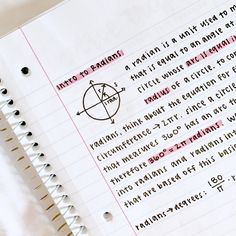 Intro to Radians
a radian is a unit used to m
that is equal to an angle at
circle whos arc is equal in
radius of a circle. to con
radians, think about the equation for f
circumference → 2πr. since a circle
that measures 360° has an arc th
therefore 360° = 2π radians. wh
into radians and radians into
that are based off this basi
radians → degrees: 180
π